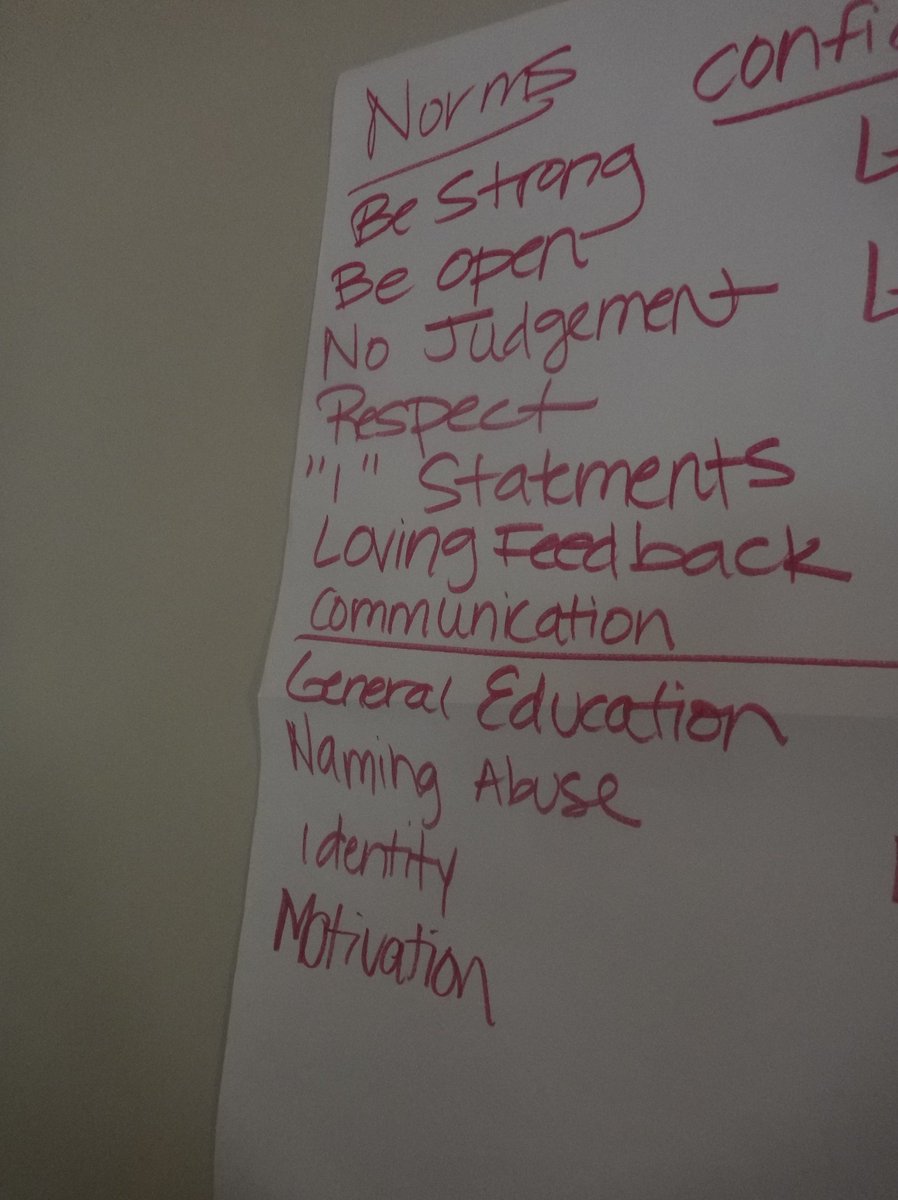 Norms
Be Strong
Be Open
No Judgement
Respect
"I" Statements
Loving Feedback
Communication
General Education
Naming Abuse
Identity
Motivation